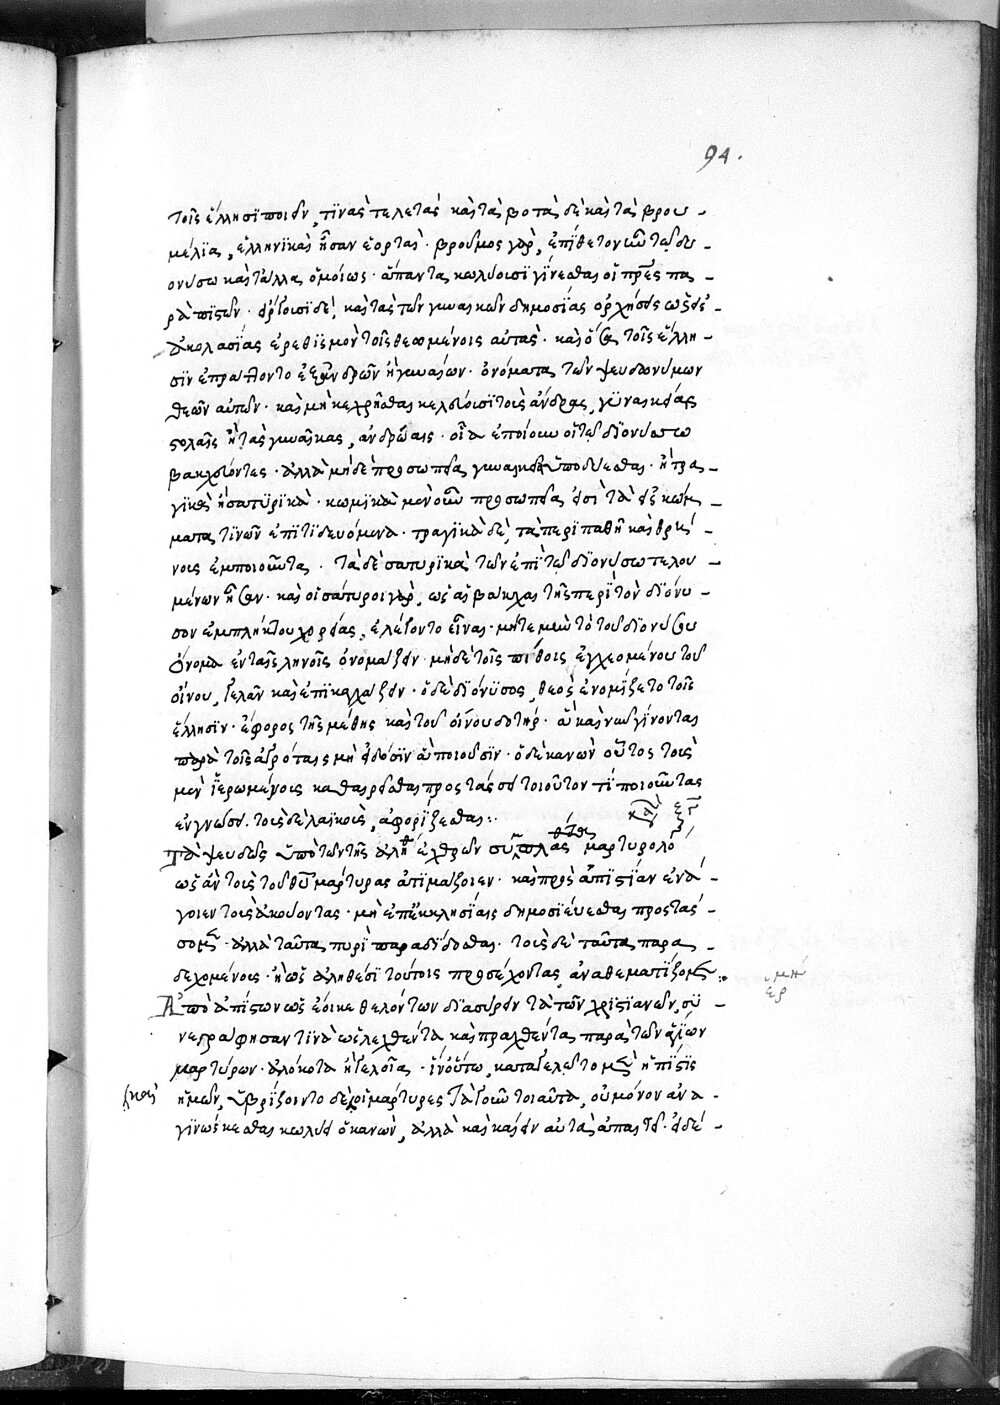 94.
τοῖς ἕλλησϊ ποιεῖν, τϊνὰς τελετάς καὶ τὰ βοτὰ δὲ καὶ τὰ βρου-
μέλϊα, ἑλληνϊκαὶ ἦσαν ἑορταὶ. βροῦμος γὰρ, ἐπίθετον
ονύσω καὶ τἆλλα ὁμοίως. ἅπαντα κωλύουσϊ γίνεσθαι οἱ πρες πα-
ρὰ πϊστῶν. εἴργουσϊ δὲ, καὶ τὰς τῶν γυναικῶν δημοσίας ὀρχήσεις ὡς εἰς
ἀκολασίας ἐρεθϊσμὸν τοῖς θεωμένοις αὐτάς. καὶ ὅσα τοῖς ἕλλη-
σϊν ἐπράττοντο ἐξ ἀνδρῶν ἢ γυναικῶν. ὀνόματα τῶν ψευδωνύμων
θεῶν αὐτῶν. καὶ μὴ κεχρῆσθαι κελεύουσϊ τοὺς ἄνδρας, γϋναικείαις
στολαῖς ἢ τὰς γυναῖκας, ἀνδρώαις. οἷα ἐποίουν οἱ τῶ διονύσω
βακχεύοντες. ἀλλὰ μὴ δὲ προσωπεῖα γυναικεῖα ὑποδύεσθαι. ἢ τρα-
γϊκὰ ἢ σατϋρϊκὰ. κωμϊκὰ μὲν οὖν προσωπεῖα εἰσὶ τὰ
ματα τϊνῶν ἐπϊτϊδευόμενα. τραγϊκὰ δὲ, τὰ περϊπαθῆ καὶ θρή-
νους ἐμποιοῦντα. τὰ δὲ σατυρϊκὰ τῶν ἐπϊ τῶ διονύσω τελου-
μένων ἦσαν. καὶ οἱ σάτυροι γὰρ, ὡς αἱ βάκχαι τῆς περϊ τὸν διόνυ-
σον ἐμπλήκτου χορείας, ἐλέγοντο εἶναι. μήτε μὴν τὸ τοῦ διονύσου
ὄνομα ἐν ταῖς ληνοῖς ὀνομάζειν. μὴ δὲ τοῖς πίθοις ἐγχεομένου τοῦ
οἴνου, γελᾶν καὶ ἐπϊκαχλάζειν. ὁ δὲ διόνϋσος, θεὸς ἐνομίζετο τοῖς
ἕλλησϊν. ἔφορος τῆς μέθης καὶ τοῦ οἴνου δοτήρ. ἃ καὶ νῦν γίνονται
παρὰ τοῖς ἀγρόταις μὴ εἰδόσϊν ἃ ποιοῦσϊν. ὁ δὲ κανὼν οὗτος τοὺς
μὲν ἱερωμένους καθαιρεῖσθαι προστάσσει τοιοῦτον τϊ ποιοῦντας
ἐν γνώσει. τοὺς δὲ λαϊκοὺς, ἀφορίζεσθαι:
Τὰ ψευδῶς ὑπὸ τῶν τῆς ἀλη ἐχθρῶν συμπλασθέντα μαρτυρολο
ὡς ἂν τοὺς τοῦ θυ μάρτυρας ἀτϊμάζοιεν. καὶ πρὸς ἀπϊστίαν ἐνά-
γοιεν τοὺς ἀκούοντας. μὴ ἐπ' ἐκκλησίαις δημοσϊεύεσθαι προστάσ-
σομεν. ἀλλὰ ταῦτα πυρὶ παραδίδοσθαι. τοὺς δὲ ταῦτα παρα-
δεχομένους. ἢ ὡς ἀληθέσϊ τούτοις προσέχοντας ἀναθεματίζομεν:
μὴ
ερ
Ἀπὸ ἀπίστων ὡς ἔοικε θελόντων δϊασύρειν τὰ τῶν χριστϊανῶν, συ-
νεγράφησαν τϊνὰ ὡς λεχθέντα καὶ πραχθέντα παρὰ τῶν ἁγίων
μαρτύρων. ἀλόκοτα ἢ γελοῖα. ἵν' οὕτω, καταγελῶτο μὲν ἡ πίστϊς
καὶ
ἡμῶν, ὑβρίζοιντο δὲ οἱ μάρτυρες. Τὰ γοῦν τοιαῦτα, οὐ μόνον ἀνα-
γϊνώσκεσθαι κωλύει ὁ κανὼν, ἀλλὰ καὶ καίειν αὐτὰ ἀπαιτεῖ. εἰ δέ-